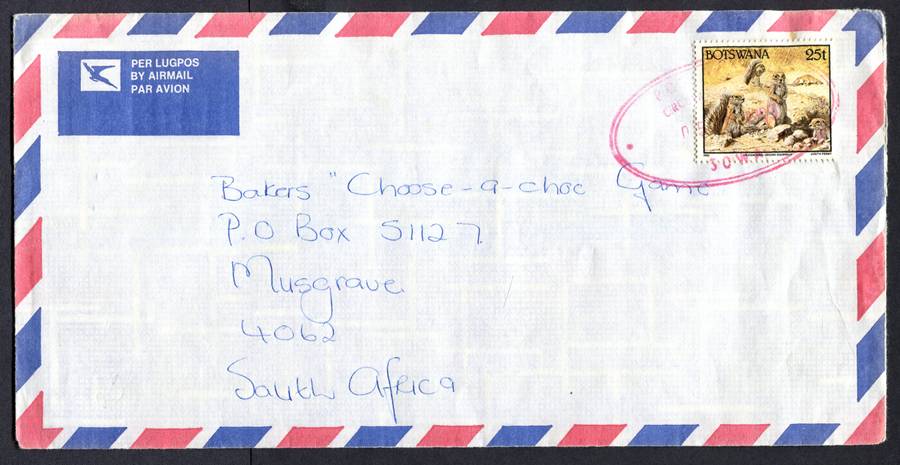 PER LUGPOS
BY AIRMAIL
PAR AVION
BOTSWANA 25t
SOWA
Bakers "Choose-a-choc Game
P.O Box 51127
Musgrave
4062
South Africa